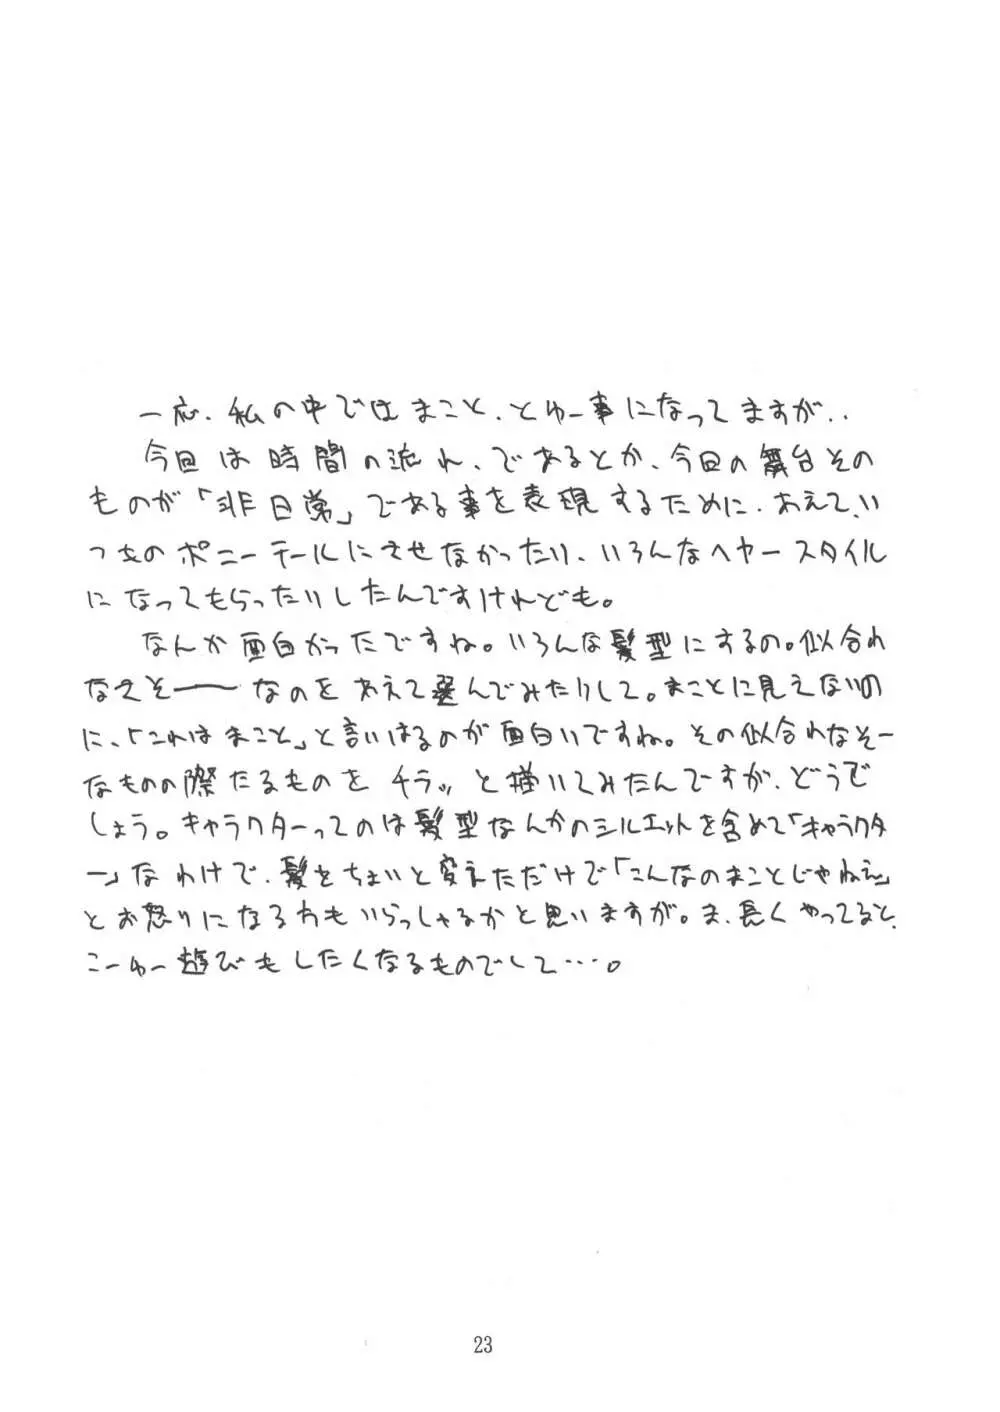 一応、私の中ではまこと、とゆー事になってますが、、
今回は時間の流れ、であるとか、今回の舞台その
ものが「非日常」である事を表現するために、あえて、い
つものポニーテールにさせなかったり、いろんなヘヤースタイル
になってもらったりしたんですけれども。
なんか面白かったですね。いろんな髪型にするの。似合わ
なえそ──なのをあえて選んでみたりして。まことに見えないの
に、「これはまこと」と言いはるのが面白いですね。その似合わなそー
なものの際たるものをチラッと描いてみたんですが、どうで
しょう。キャラクターってのは髪型なんかのシルエットを含めて「キャラクタ
ー」なわけで、髪をちょいと変えただけで「こんなのまことじゃねえ」
とお怒りになる方もいらっしゃるかと思いますが。ま、長くやってると、
こーゆー遊びもしたくなるものでして…。
23